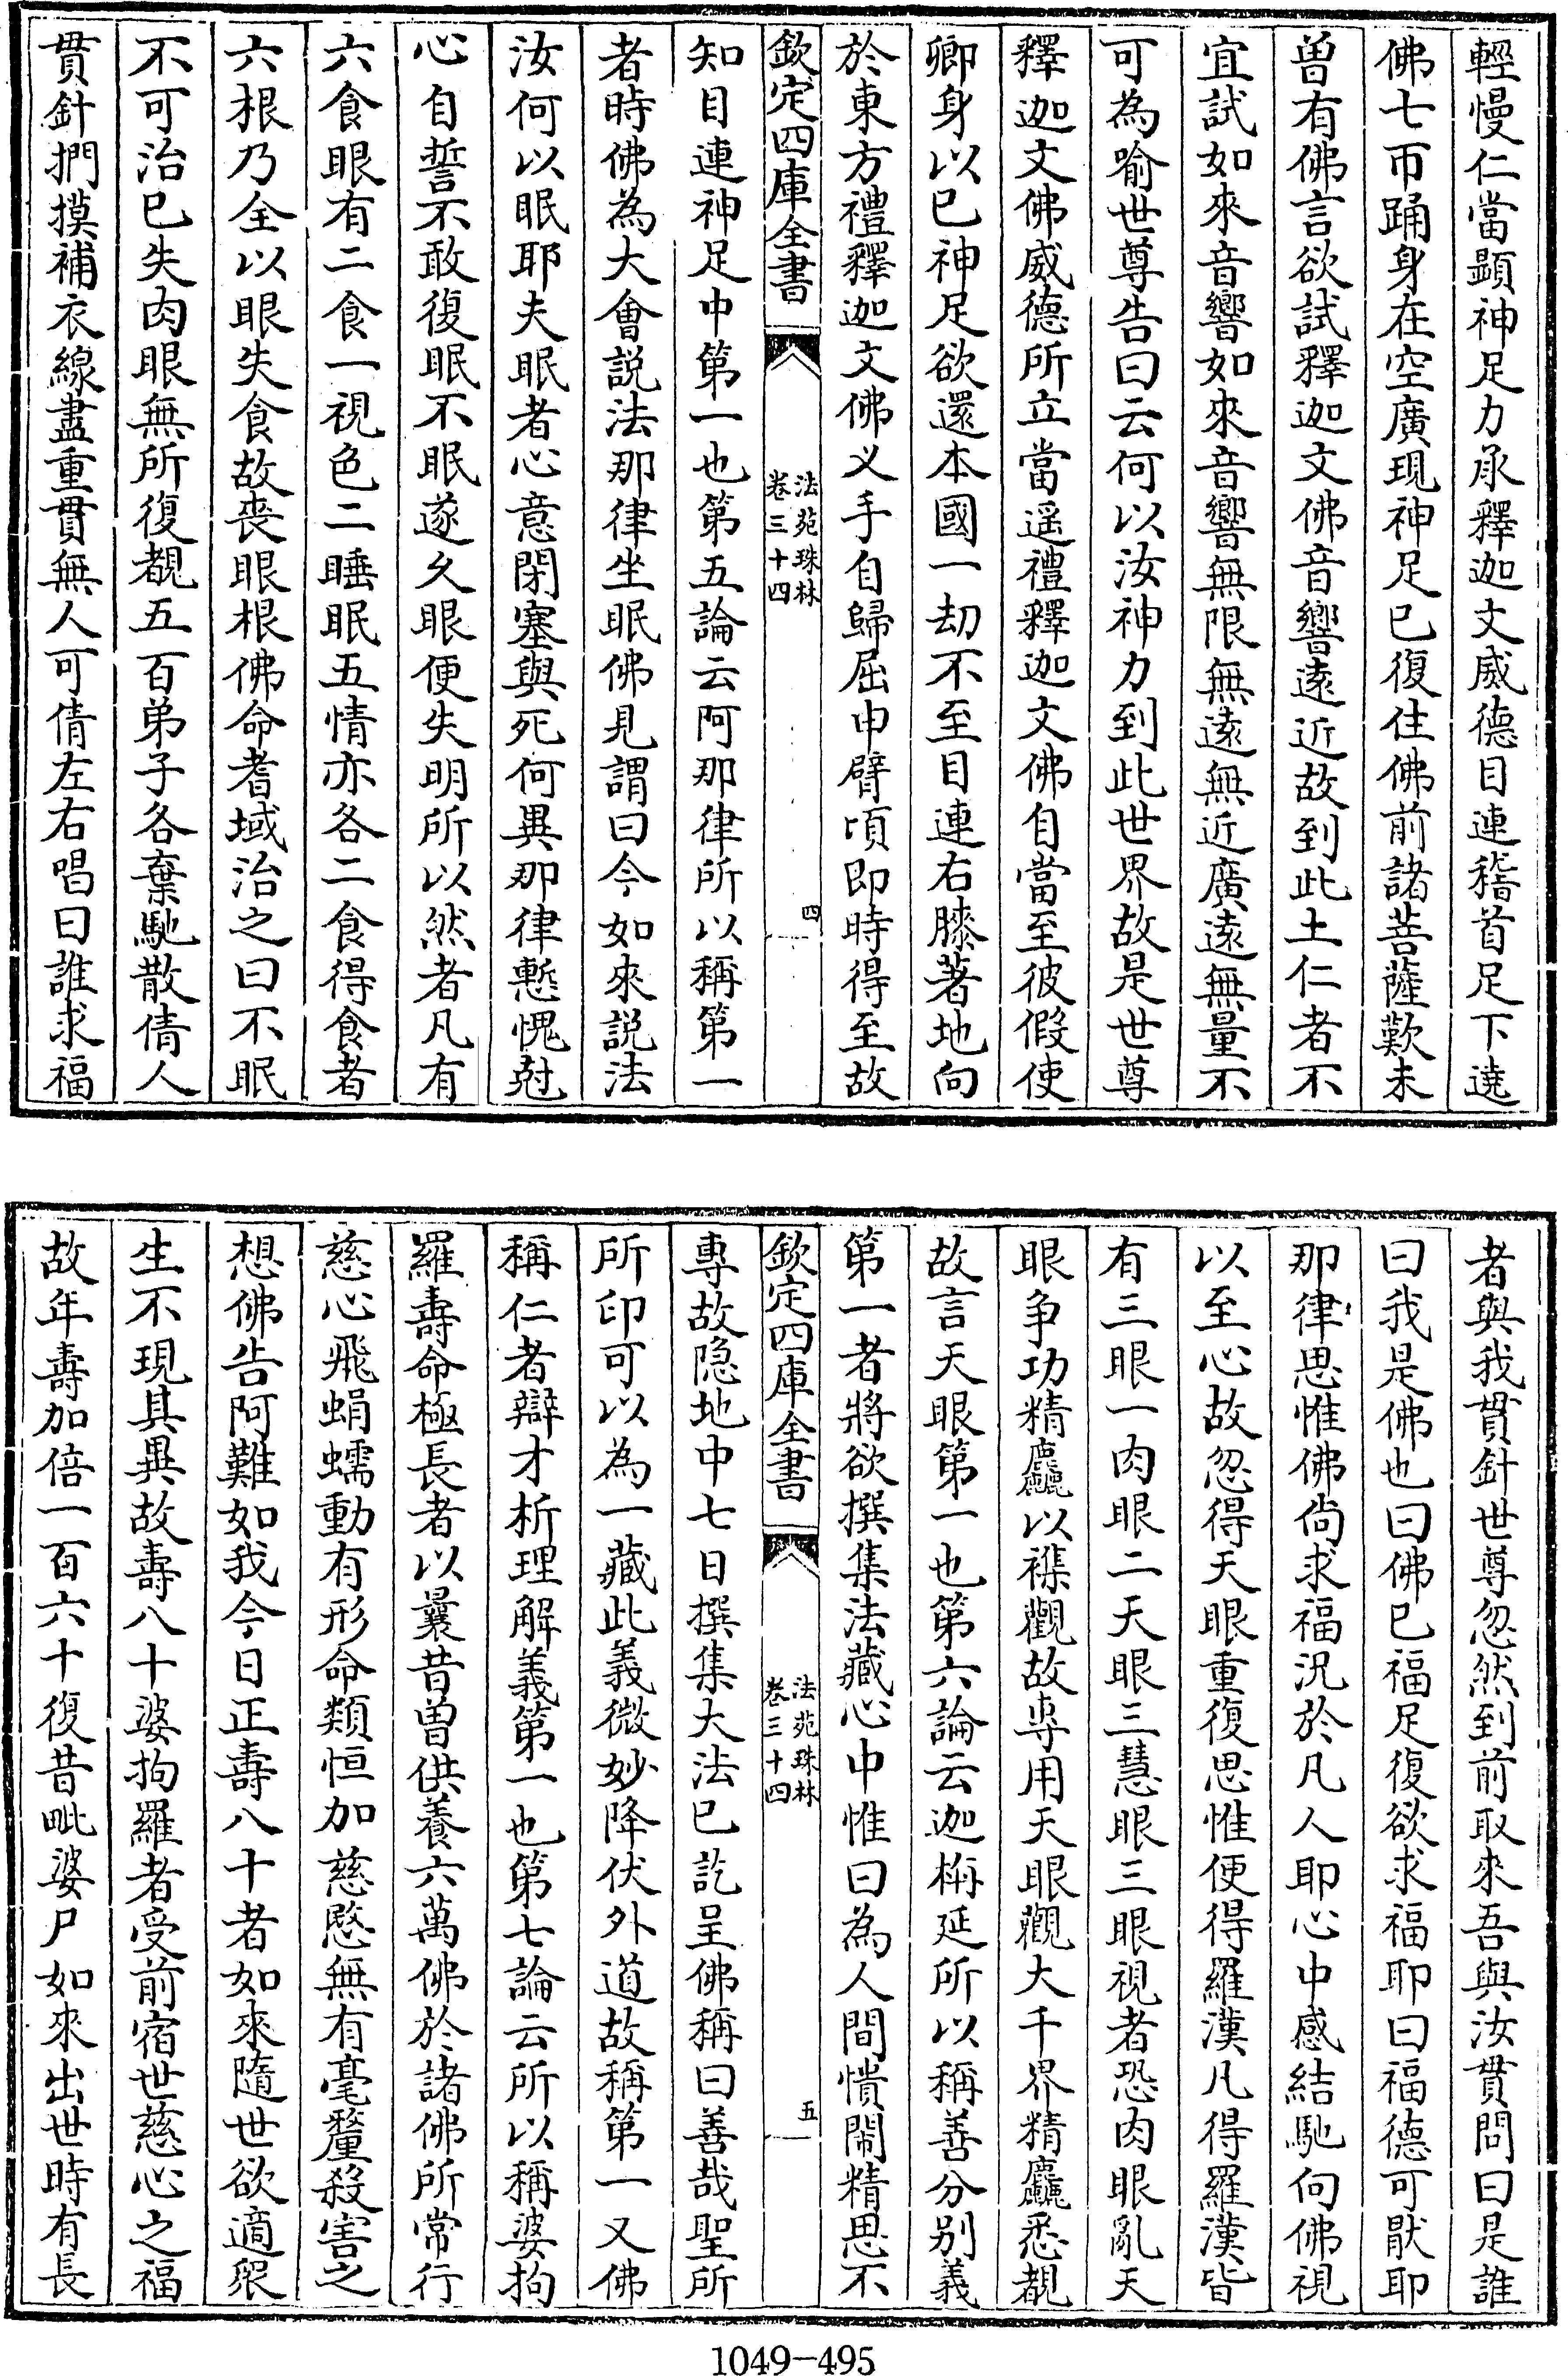 輕慢仁當顯神足力承釋迦文威德目連稽首足下遶
佛七帀踊身在空廣現神足已復住佛前諸菩薩歎未
曽有佛言欲試釋迦文佛音響逺近故到此土仁者不
宜試如來音響如來音響無限無逺無近廣逺無量不
可為喻世尊告曰云何以汝神力到此世界故是世尊
釋迦文佛威德所立當遥禮釋迦文佛自當至彼假使
卿身以已神足欲還本國一劫不至目連右膝著地向
於東方禮釋迦文佛义手自歸屈申臂頃即時得至故
欽定四庫全書
法苑珠林
卷三十四
四
知目連神足中第一也第五論云阿那律所以稱第一
者時佛為大會説法那律坐眠佛見謂曰今如來説法
汝何以眠耶夫眠者心意閉塞與死何異那律慙愧尅
心自誓不敢復眠不眠遂久眼便失明所以然者凡有
六食眼有二食一視色二睡眠五情亦各二食得食者
六根乃全以眼失食故丧眼根佛命耆域治之曰不眠
不可治已失肉眼無所復覩五百弟子各棄馳散倩人
貫針捫摸補衣線盡重貫無人可倩左右唱曰誰求福
者與我貫針世尊忽然到前取來吾與汝貫問曰是誰
曰我是佛也曰佛已福足復欲求福耶曰福德可猒耶
那律思惟佛尚求福況於凡人耶心中感結馳向佛視
以至心故忽得天眼重復思惟便得羅漢凡得羅漢皆
有三眼一肉眼二天眼三慧眼三眼視者恐肉眼亂天
眼争功精麤以襍觀故専用天眼觀大千界精麤悉覩
故言天眼第一也第六論云迦栴延所以稱善分别義
第一者將欲撰集法藏心中惟曰為人間憒閙精思不
欽定四庫全書
法苑珠林
卷三十四
五
專故隐地中七日撰集大法已訖呈佛稱曰善哉聖所
所印可以為一藏此義微妙降伏外道故稱第一又佛
稱仁者辯才析理解義第一也第七論云所以稱婆拘
羅壽命極長者以曩昔曽供養六萬佛於諸佛所常行
慈心飛蜎蠕動有形命類恒加慈愍無有毫釐殺害之
想佛告阿難如我今日正壽八十者如來隨世欲適衆
生不現其異故壽八十婆拘羅者受前宿世慈心之福
故年壽加倍一百六十復昔毗婆尸如來出世時有長
1049-495